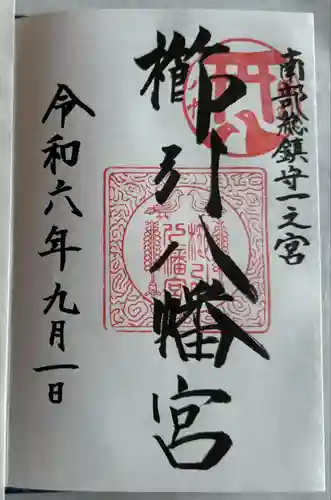 南部総鎮守一之宮
櫛引八幡宮
令和六年九月一日